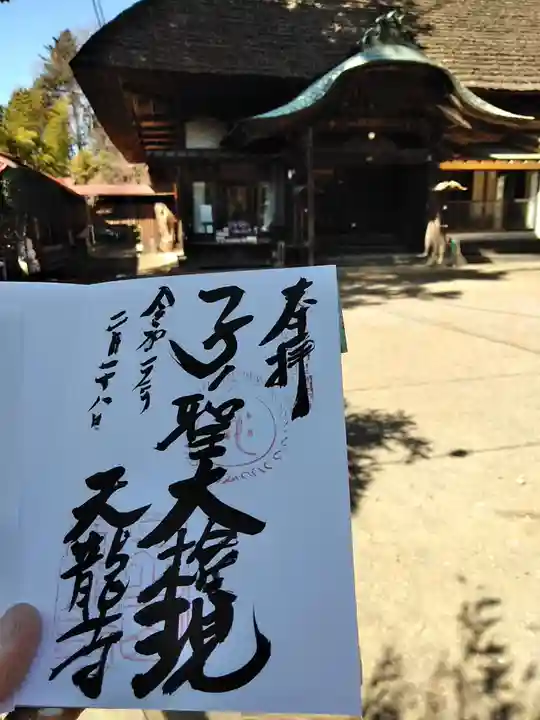 奉拝
子ノ聖大権現
天龍寺
二月二十八日